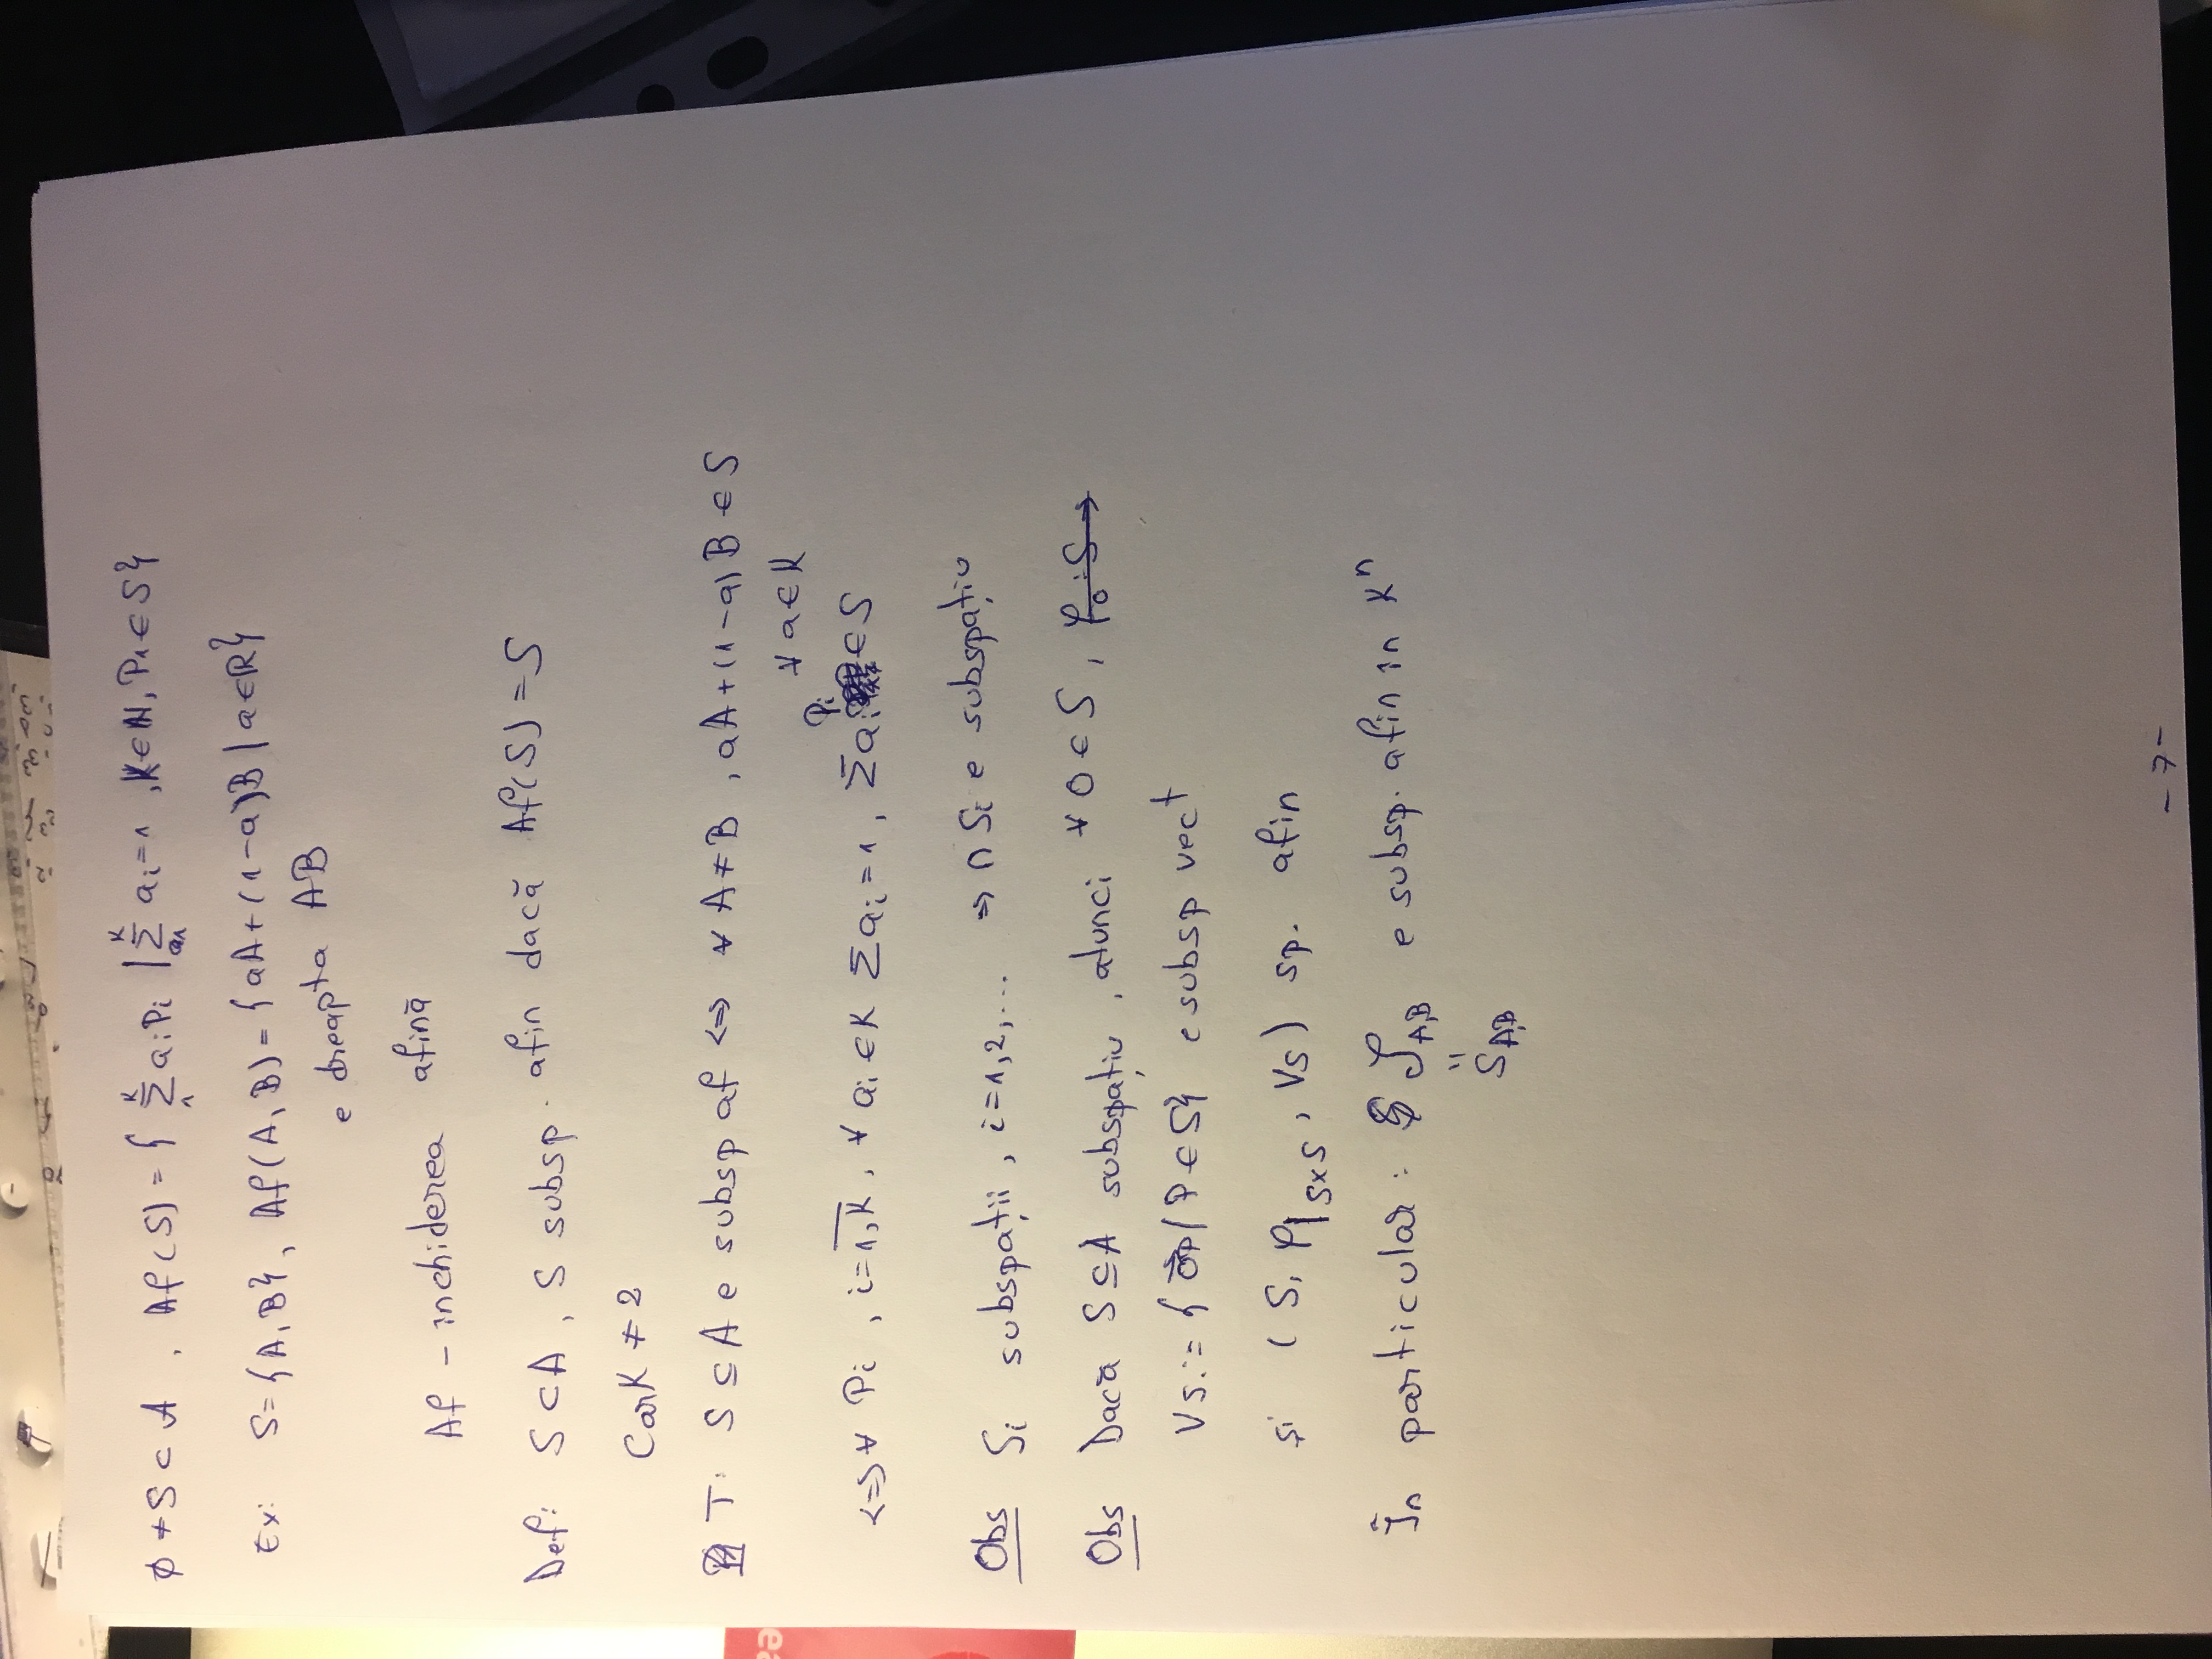 ∅ ≠ S ⊂ A , Af(S) = { Σ₁ᴷ aᵢPᵢ | Σ₁ᴷ aᵢ = 1 , K ∈ N, P₁ ∈ S}
Ex: S = {A, B}, Af(A, B) = {aA + (1-a)B | a ∈ R}
e dreapta AB
Af - închiderea afină
Def: S ⊂ A , S subsp. afin dacă Af(S) = S
CarK ≠ 2
T: S ⊆ A e subsp af <=> ∀ A ≠ B , aA + (1-a) B ∈ S
∀ a ∈ K
<=> ∀ Pᵢ , i = 1,K , ∀ aᵢ ∈ K Σaᵢ = 1 , ΣaᵢPᵢ ∈ S
Obs Sᵢ subspații , i = 1,2,... => ∩ Sᵢ e subspațiu
Obs Dacă S ⊆ A subspațiu , atunci ∀ O ∈ S , φ₀ : S →
Vs := { OP | P ∈ S} e subsp vect
și ( S, φ|S×S , Vs ) sp. afin
În particular : S_A,B e subsp. afin în Kⁿ
"
S_A,B
- 7 -